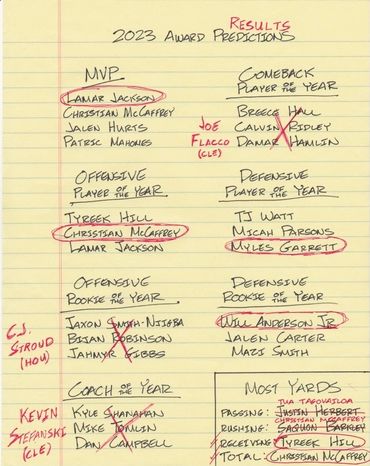 RESULTS
2023 AWARD PREDICTIONS
MVP
LAMAR JACKSON
CHRISTIAN MCCAFFREY
JALEN HURTS
PATRIC MAHOMES
COMEBACK
PLAYER OF THE YEAR
BREECE HALL
CALVIN RIDLEY
DAMAR HAMLIN
JOE
FLACCO
(CLE)
OFFENSIVE
PLAYER OF THE YEAR
TYREEK HILL
CHRISTIAN MCCAFFREY
LAMAR JACKSON
DEFENSIVE
PLAYER OF THE YEAR
TJ WATT
MICAH PARSONS
MYLES GARRETT
OFFENSIVE
ROOKIE OF THE YEAR
JAXON SMITH-NJIGBA
BIJAN ROBINSON
JAHMYR GIBBS
C.J.
STROUD
(HOU)
DEFENSIVE
ROOKIE OF THE YEAR
WILL ANDERSON JR
JALEN CARTER
MAZI SMITH
COACH OF THE YEAR
KYLE SHANAHAN
MIKE TOMLIN
DAN CAMPBELL
KEVIN
STEFANSKI
(CLE)
MOST YARDS
TUA TAGOVAILOA
PASSING: JUSTIN HERBERT
CHRISTIAN MCCAFFREY
RUSHING: SAQUON BARKLEY
RECEIVING: TYREEK HILL
TOTAL: CHRISTIAN MCCAFFREY